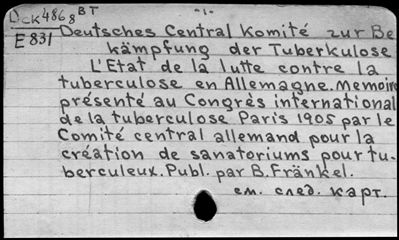 Dck4868 BT
"1"
E831
Deutsches Central Komité zur Be
kämpfung der Tuberkulose
L'Etat de la lutte contre la
tuberculose en Allemagne. Memoire
présenté au Congrès international
de la tuberculose Paris 1905 par le
Comité central allemand pour la
création de sanatoriums pour tu-
berculeux. Publ. par B. Fränkel.
см. след. карт.